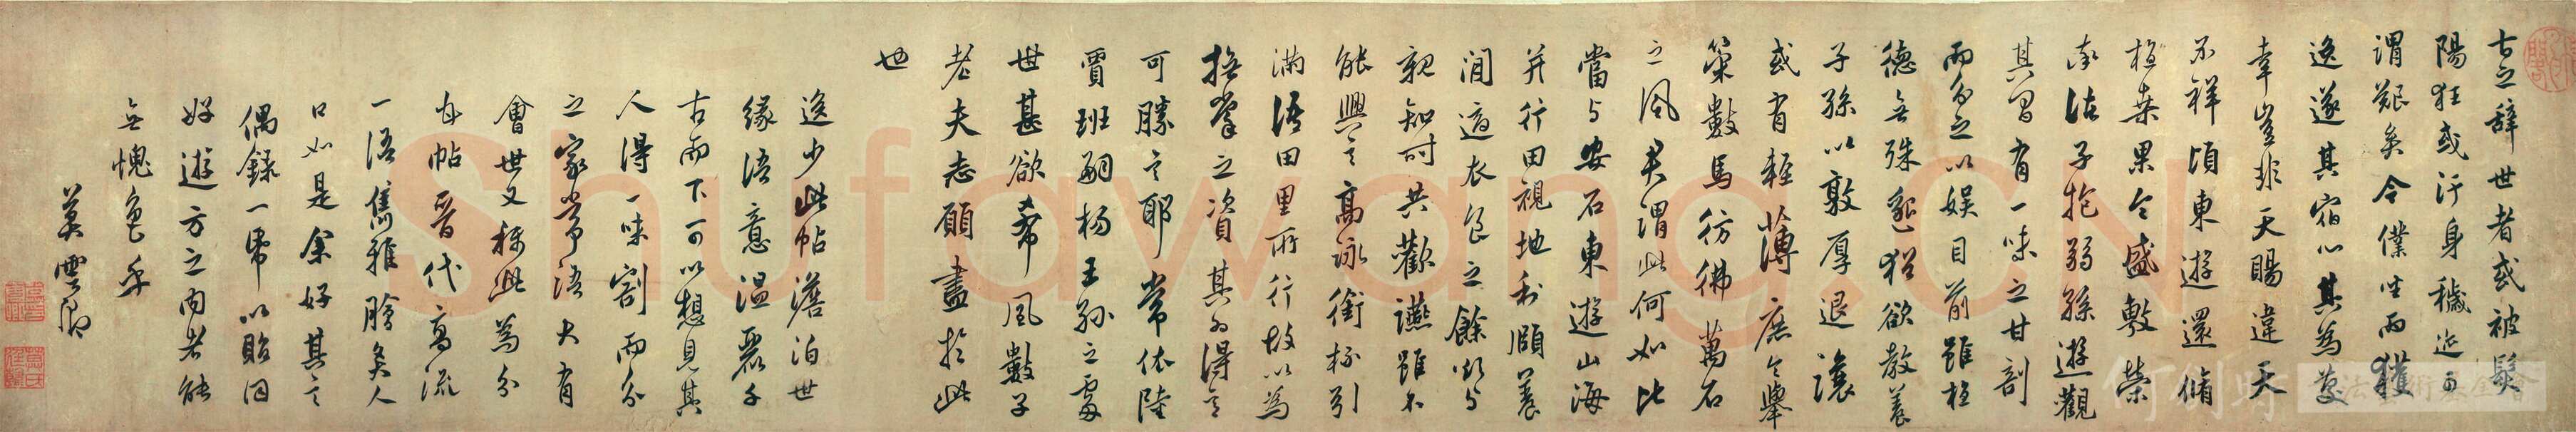 古之辭世者或被髮
陽狂或汙身穢迹可
謂艱矣今僕坐而獲
逸遂其宿心其為慶
幸豈非天賜違天
不祥頃東遊還脩
植桑果今盛敷榮
率諸子抱弱孫遊觀
其間有一味之甘割
而分之以娛目前雖植
德無殊邈猶欲教養
子孫以敦厚退讓
或有輕薄庶令舉
策數馬彷彿萬石
之風君謂此何如比
當与安石東遊山海
并行田視地利頤養
閒適衣食之餘欲与
親知時共歡讌雖不
能興言高詠銜杯引
滿語田里所行故以為
撫掌之資其為得意
可勝言耶常依陸
賈班嗣楊王孫之處
世甚欲希風數子
老夫志願盡於此
也
逸少此帖澹泊世
緣語意溫麗千
古而下可以想見其
人得一味割而分
之家常語大有
會世又稱此為分
甘帖晉代高流
一語雋雅膾炙人
口如是余好其言
偶錄一帋以貽同
好遊方之內者能
無愧色乎
莫雲卿
shufawang.CN
何創時書法藝術基金會